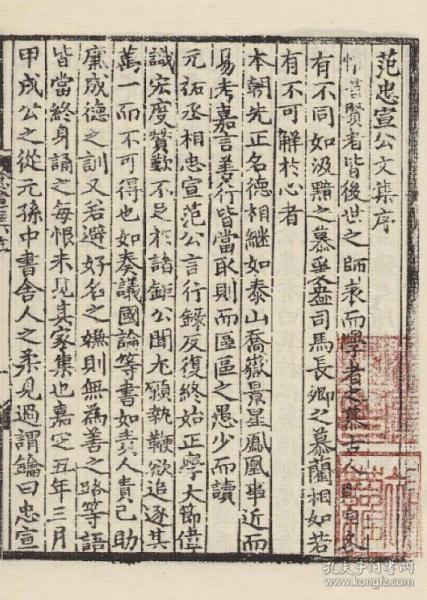 范忠宣公文集序
賢者皆後世之師表而學者之慕古人
有不同如汲黯之慕爰盎司馬長卿之慕藺相如若
有不可解於心者
本朝先正名德相繼如泰山喬嶽景星鳳凰事近而
易考嘉言善行皆當取則而區區之愚少而讀
元祐丞相忠宣范公言行錄反復終始正學大節偉
識宏度贊歎不足於諸鉅公聞尤願執鞭欲追逐其
萬一而不可得也如奏議國論等書如責人責己助
廉成德之訓又若避好名之嫌則無為善之路等語
皆當終身誦之每恨未見其家集也嘉定五年三月
甲戌公之從元孫中書舍人之柔見過謂鑰曰忠宣
孔夫子旧书网
www.kongfz.com